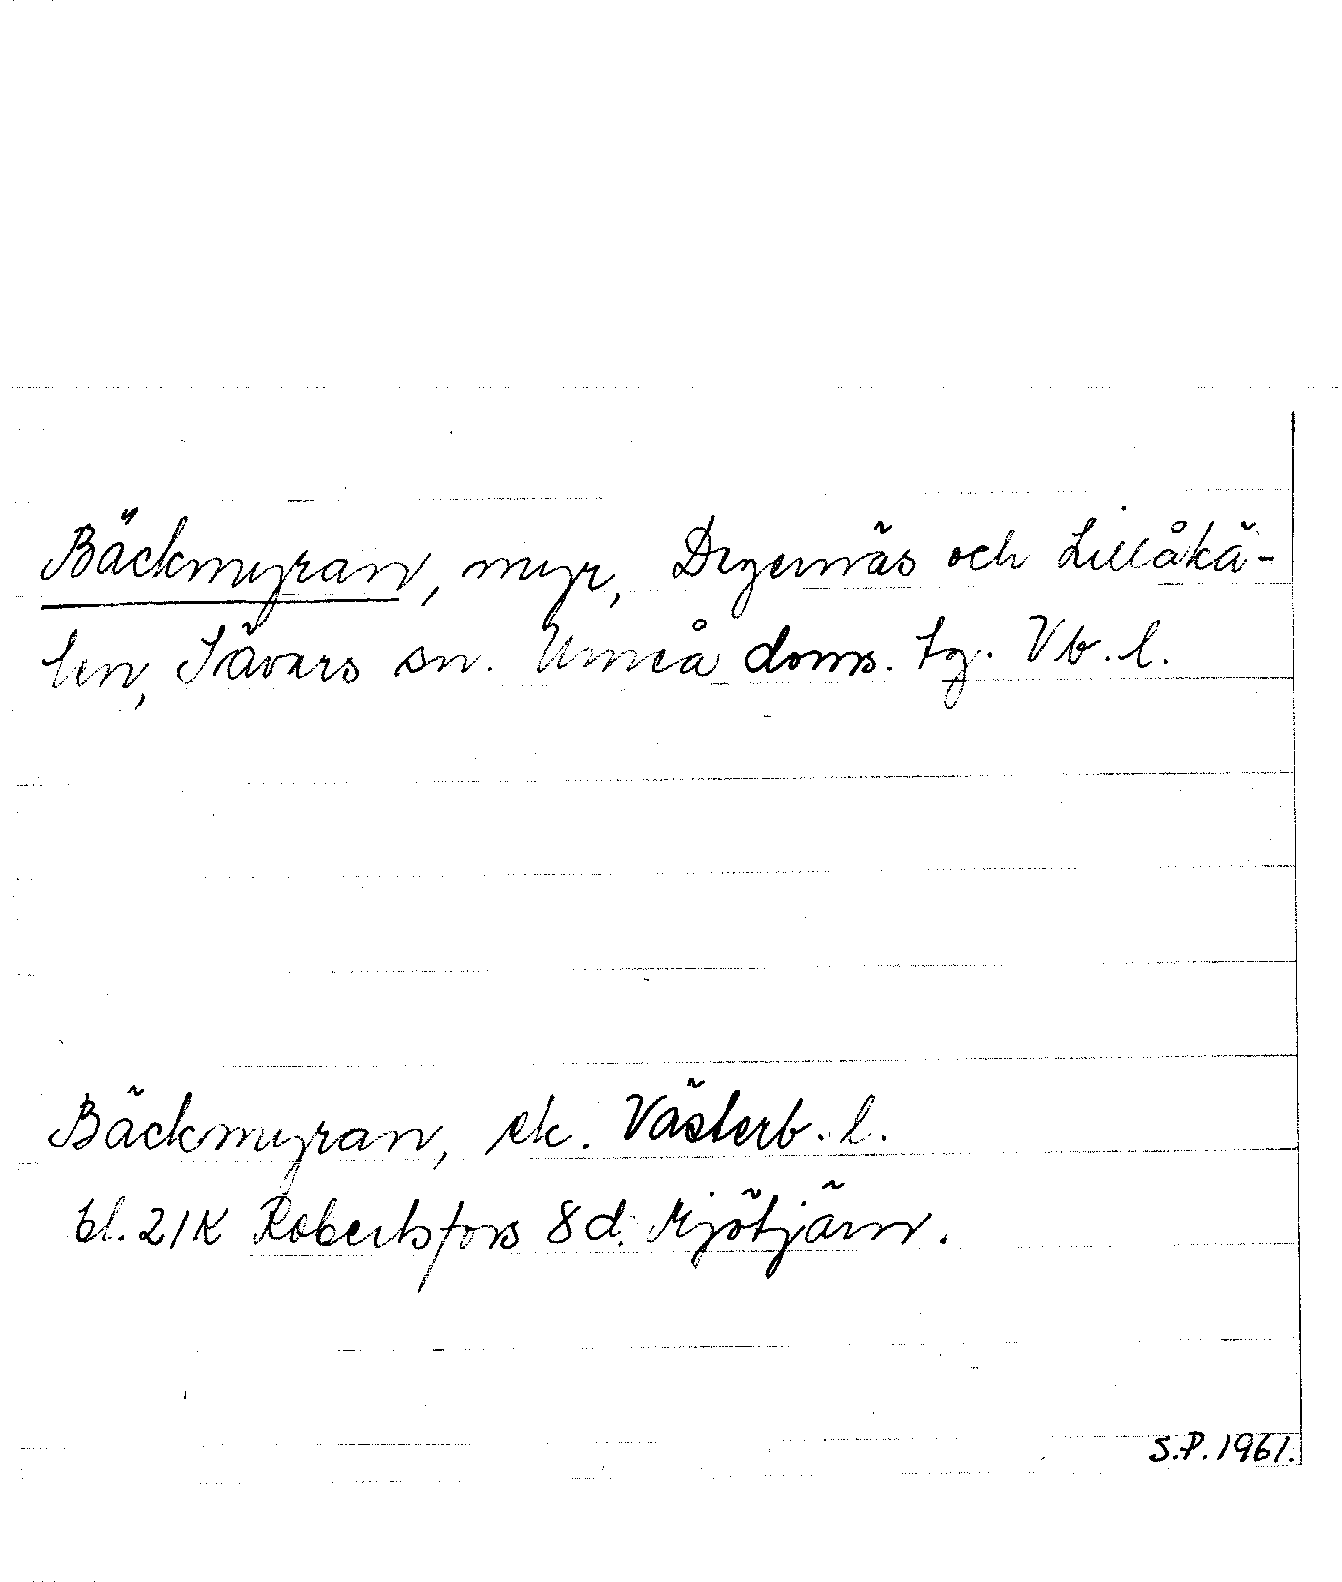 Bäckmyran, myr, Degernäs och Lillåkä-
len, Sävars sn. Umeå doms. tg. Vb. l.
Bäckmyran, ek. Västerb. l.
bl. 21K Robertsfors 8d. Mjötjärn.
S.P. 1961.